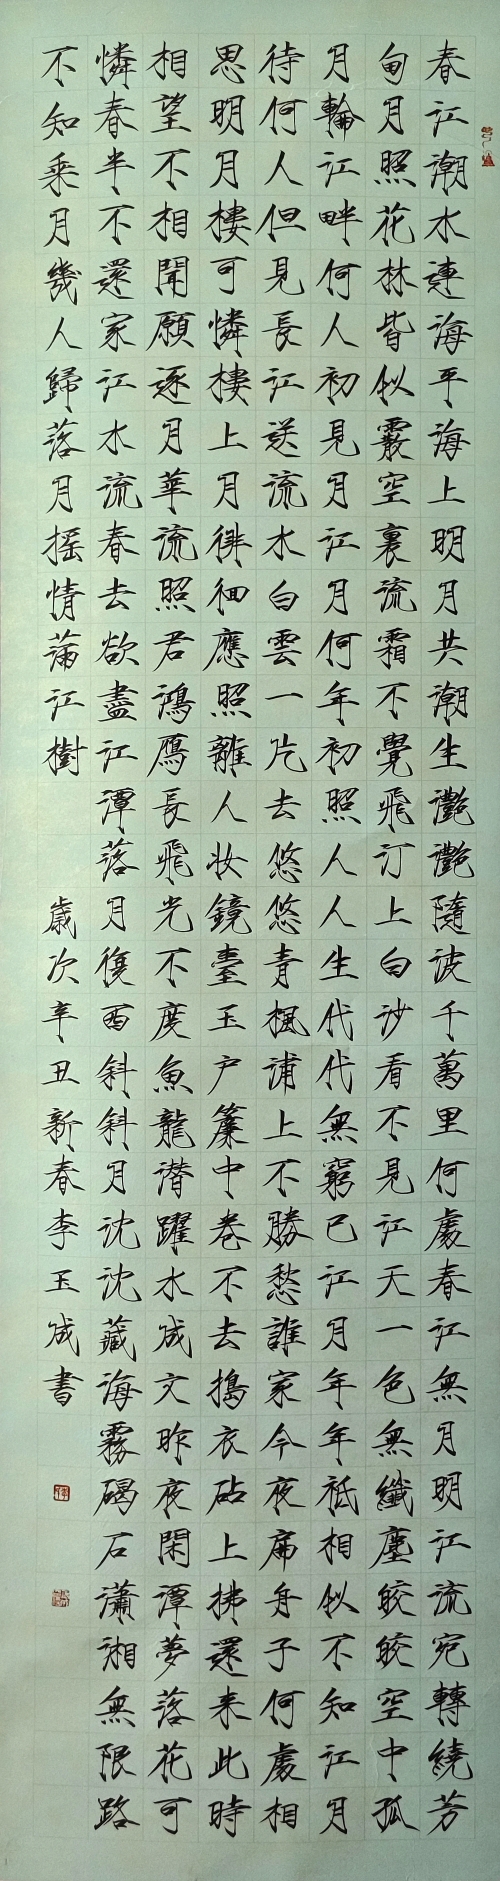 春江潮水連海平海上明月共潮生灔灔隨波千萬里何處春江無月明江流宛轉繞芳
甸月照花林皆似霰空裏流霜不覺飛汀上白沙看不見江天一色無纖塵皎皎空中孤
月輪江畔何人初見月江月何年初照人人生代代無窮已江月年年祗相似不知江月
待何人但見長江送流水白雲一片去悠悠青楓浦上不勝愁誰家今夜扁舟子何處相
思明月樓可憐樓上月徘徊應照離人妝鏡臺玉户簾中卷不去搗衣砧上拂還来此時
相望不相聞願逐月華流照君鴻鴈長飛光不度魚龍潛躍水成文昨夜閑潭夢落花可
憐春半不還家江水流春去欲盡江潭落月復西斜斜月沈沈藏海霧碣石瀟湘無限路
不知乘月幾人歸落月摇情滿江樹 歲次辛丑新春李玉成書